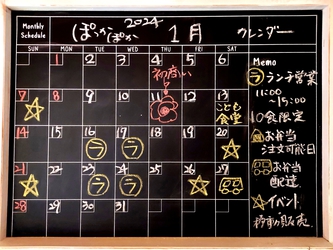 Monthly Schedule
ぽっかぽか 2024 1月 カレンダー
SUN MON TUE WED THU FRI SAT
1 2 3 4 5 6
7 8 9 10 11 12 13
初占い
こども食堂
14 15 16 17 18 19 20
ラ ラ
21 22 23 24 25 26 27
ラ ラ
28 29 30 31
Memo
ラ ランチ営業
11:00
~15:00
10食限定
お弁当
注文可能日
お弁当
配達
イベント